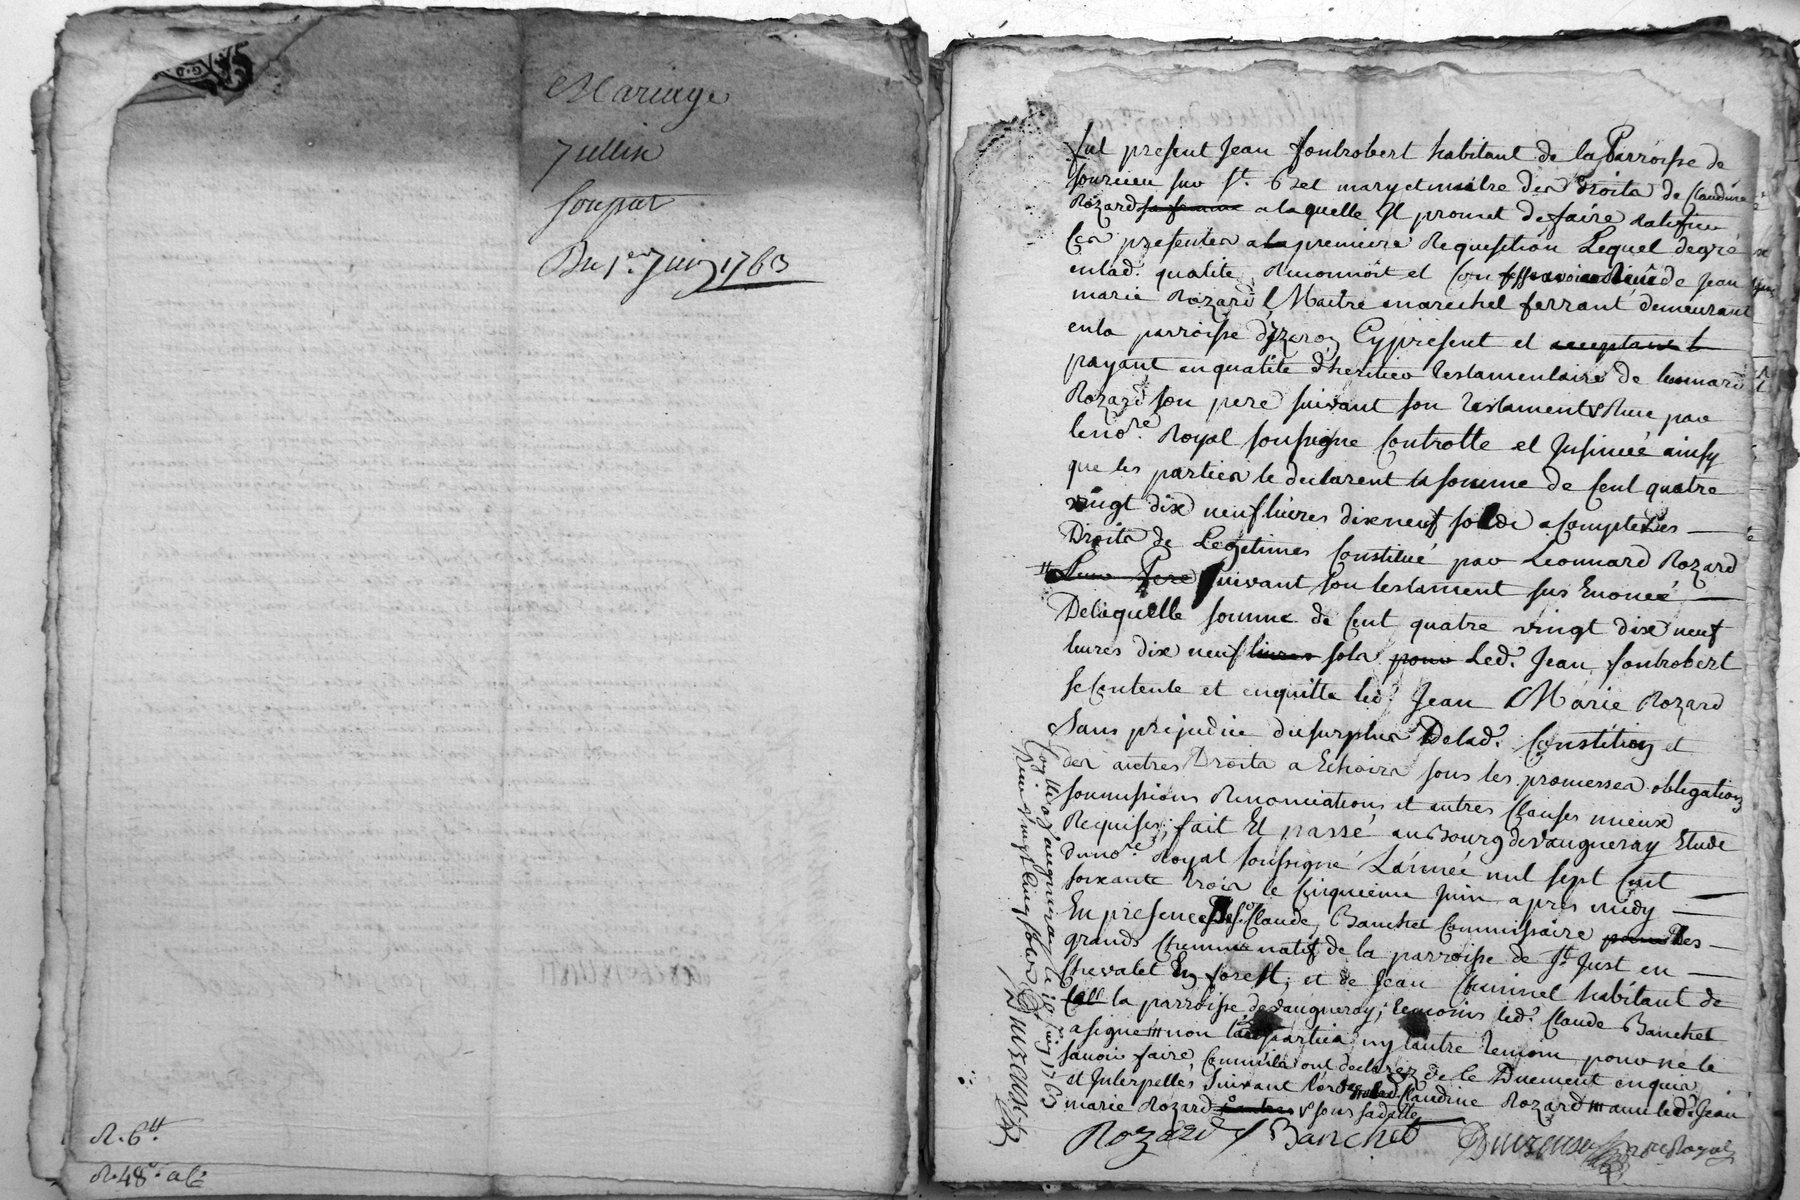 Mariage
Jullin
Soupat
Du 1er Juin 1763
R. 6tt
R. 48s. a 6d
fut present Jean fontrobert habitant de la Parroisse de
Sourcieu sur St. Bel mary et maitre des Droits de Claudine
Rozard sa femme a laquelle Il promet de faire ratifier
Ces presentes a la premiere Requisition Lequel de gré
enlad. qualité, Reconnoit et Confesse avoir Reçu de Jean
marie Rozard Maitre marechel ferrant demeurant
en la parroisse d'yzeron Cy present et acceptant
payant en qualité d'heritier testamentaire de leonnard
Rozard son pere suivant son testament Reçu par
le nore. Royal soussigné Controllé et Insinué ainsy
que les parties le declarent la somme de Cent quatre
vingt dix neuf livres dix neuf sols a Compte des
Droits de Legitimes Constitué par Leonnard Rozard
Leur Pere suivant son testament sus Enoncé
De laquelle somme de Cent quatre vingt dix neuf
livres dix neuf livres sols pour Led. Jean fontrobert
se Contente et enquitte led. Jean Marie Rozard
Sans prejudice du surplus De lad. Constition et
des autres Droits a Echoirs sous les promesses obligations
soumissions Renonciations et autres Clauses mieux
Requises, fait Et passé au Bourg de Vaugneray Etude
du nore. Royal soussigné L'année mil sept Cent
soixante trois le Cinquieme Juin apres midy
En presence De sr. Claude Banchet Commissaire des
grands Chemins natif de la parroisse de St. Just en
Chevalet En forest, et de Jean Chuninel habitant de
la parroisse de Vaugneray, temoins led. Claude Banchet
a signé non les parties ny l'autre temoin pour ne le
savoir faire Comme ils ont declarez de ce Duement enquis
et Interpellés suivant l'ord Claudine Rozard avec led. Jean
marie Rozard sous sa datte
Rozard Banchet
nre Royal
Con.lé a Vaugneray le 10 Juin 1763
Reçu vingt Cinq sols